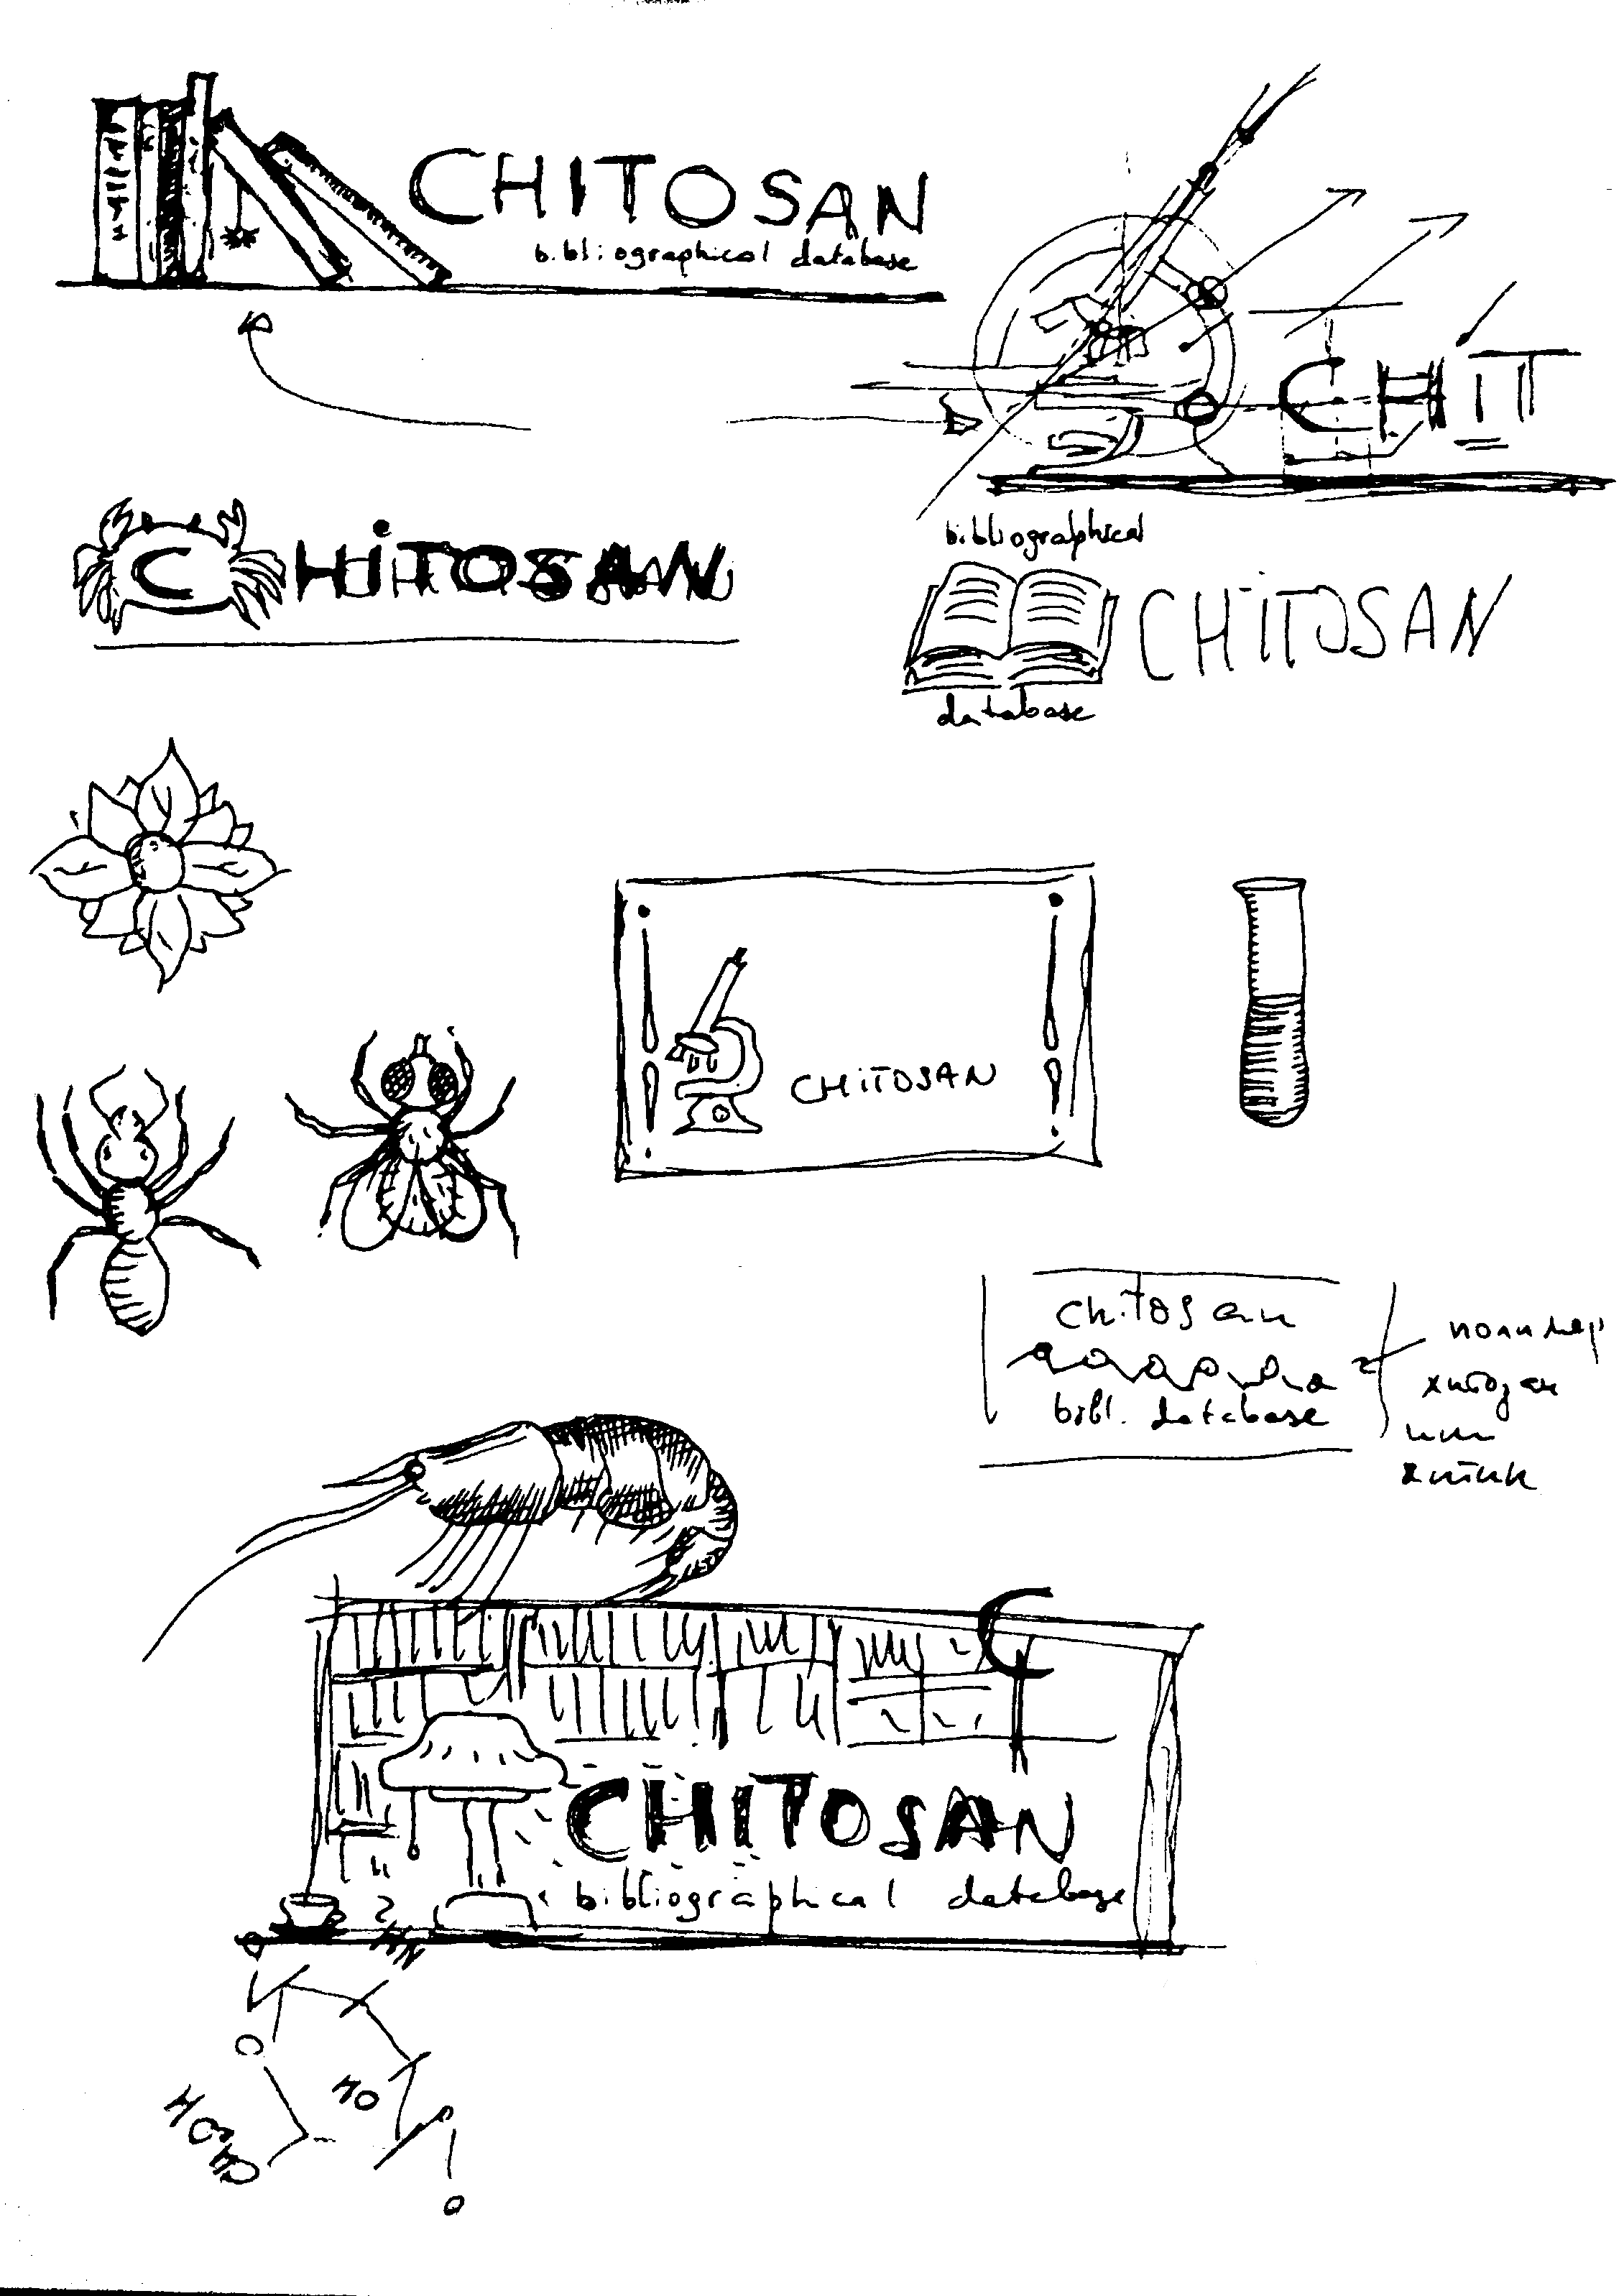 CHITOSAN
bibliographical database
CHIT
CHITOSAN
bibliographical
CHITOSAN
database
CHITOSAN
chitosan
bibl. database
полимер
хитозан
или
хитин
C
CHITOSAN
bibliographical database
O
HO
HOCH
O